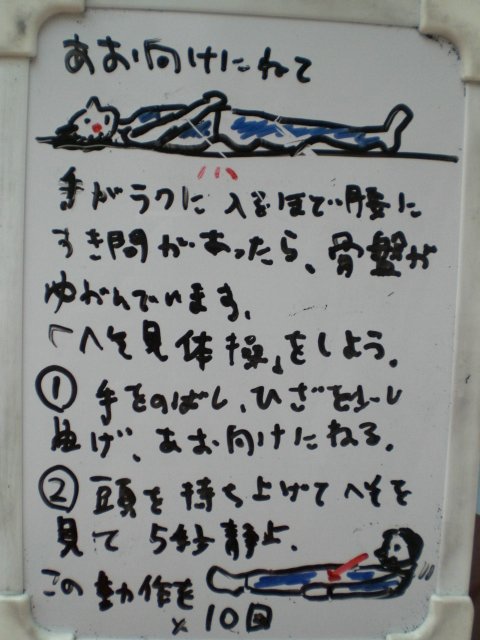 あお向けにねて
手がラクに入るほど腰に
すき間があったら、骨盤が
ゆがんでいます。
「へそ見体操」をしよう。
① 手をのばし、ひざを少し
まげ、あお向けにねる。
② 頭を持ち上げてへそを
見て 5秒静止.
この動作を
×10回